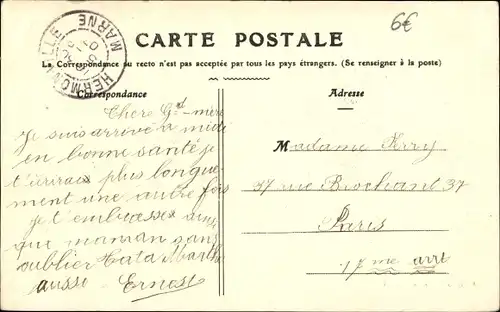 6€
HERMONVILLE
MARNE
CARTE POSTALE
La Correspondance au recto n'est pas acceptée par tous les pays étrangers. (Se renseigner à la poste)
Correspondance
Chère Gd-mère
Je suis arrivé à midi
en bonne santé je
t'écrirax plus longue-
ment une autre fois
je t'embrasse ainsi
que maman sans
oublier tata Marthe
aussi - Ernest
Adresse
Madame Ferry
37 rue Brochant 37
Paris
17me arrt